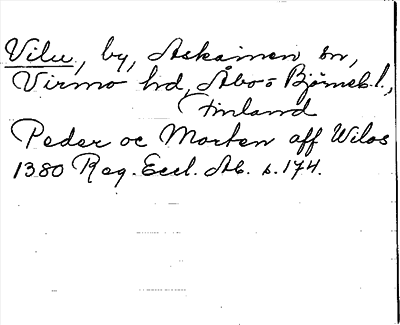 Vilu, by, Askainen sn,
Virmo hd, Åbo- o Björneb. l.,
Finland
Peder oc Morten aff Wilos
1380 Reg. Eccl. Ab. s. 174.